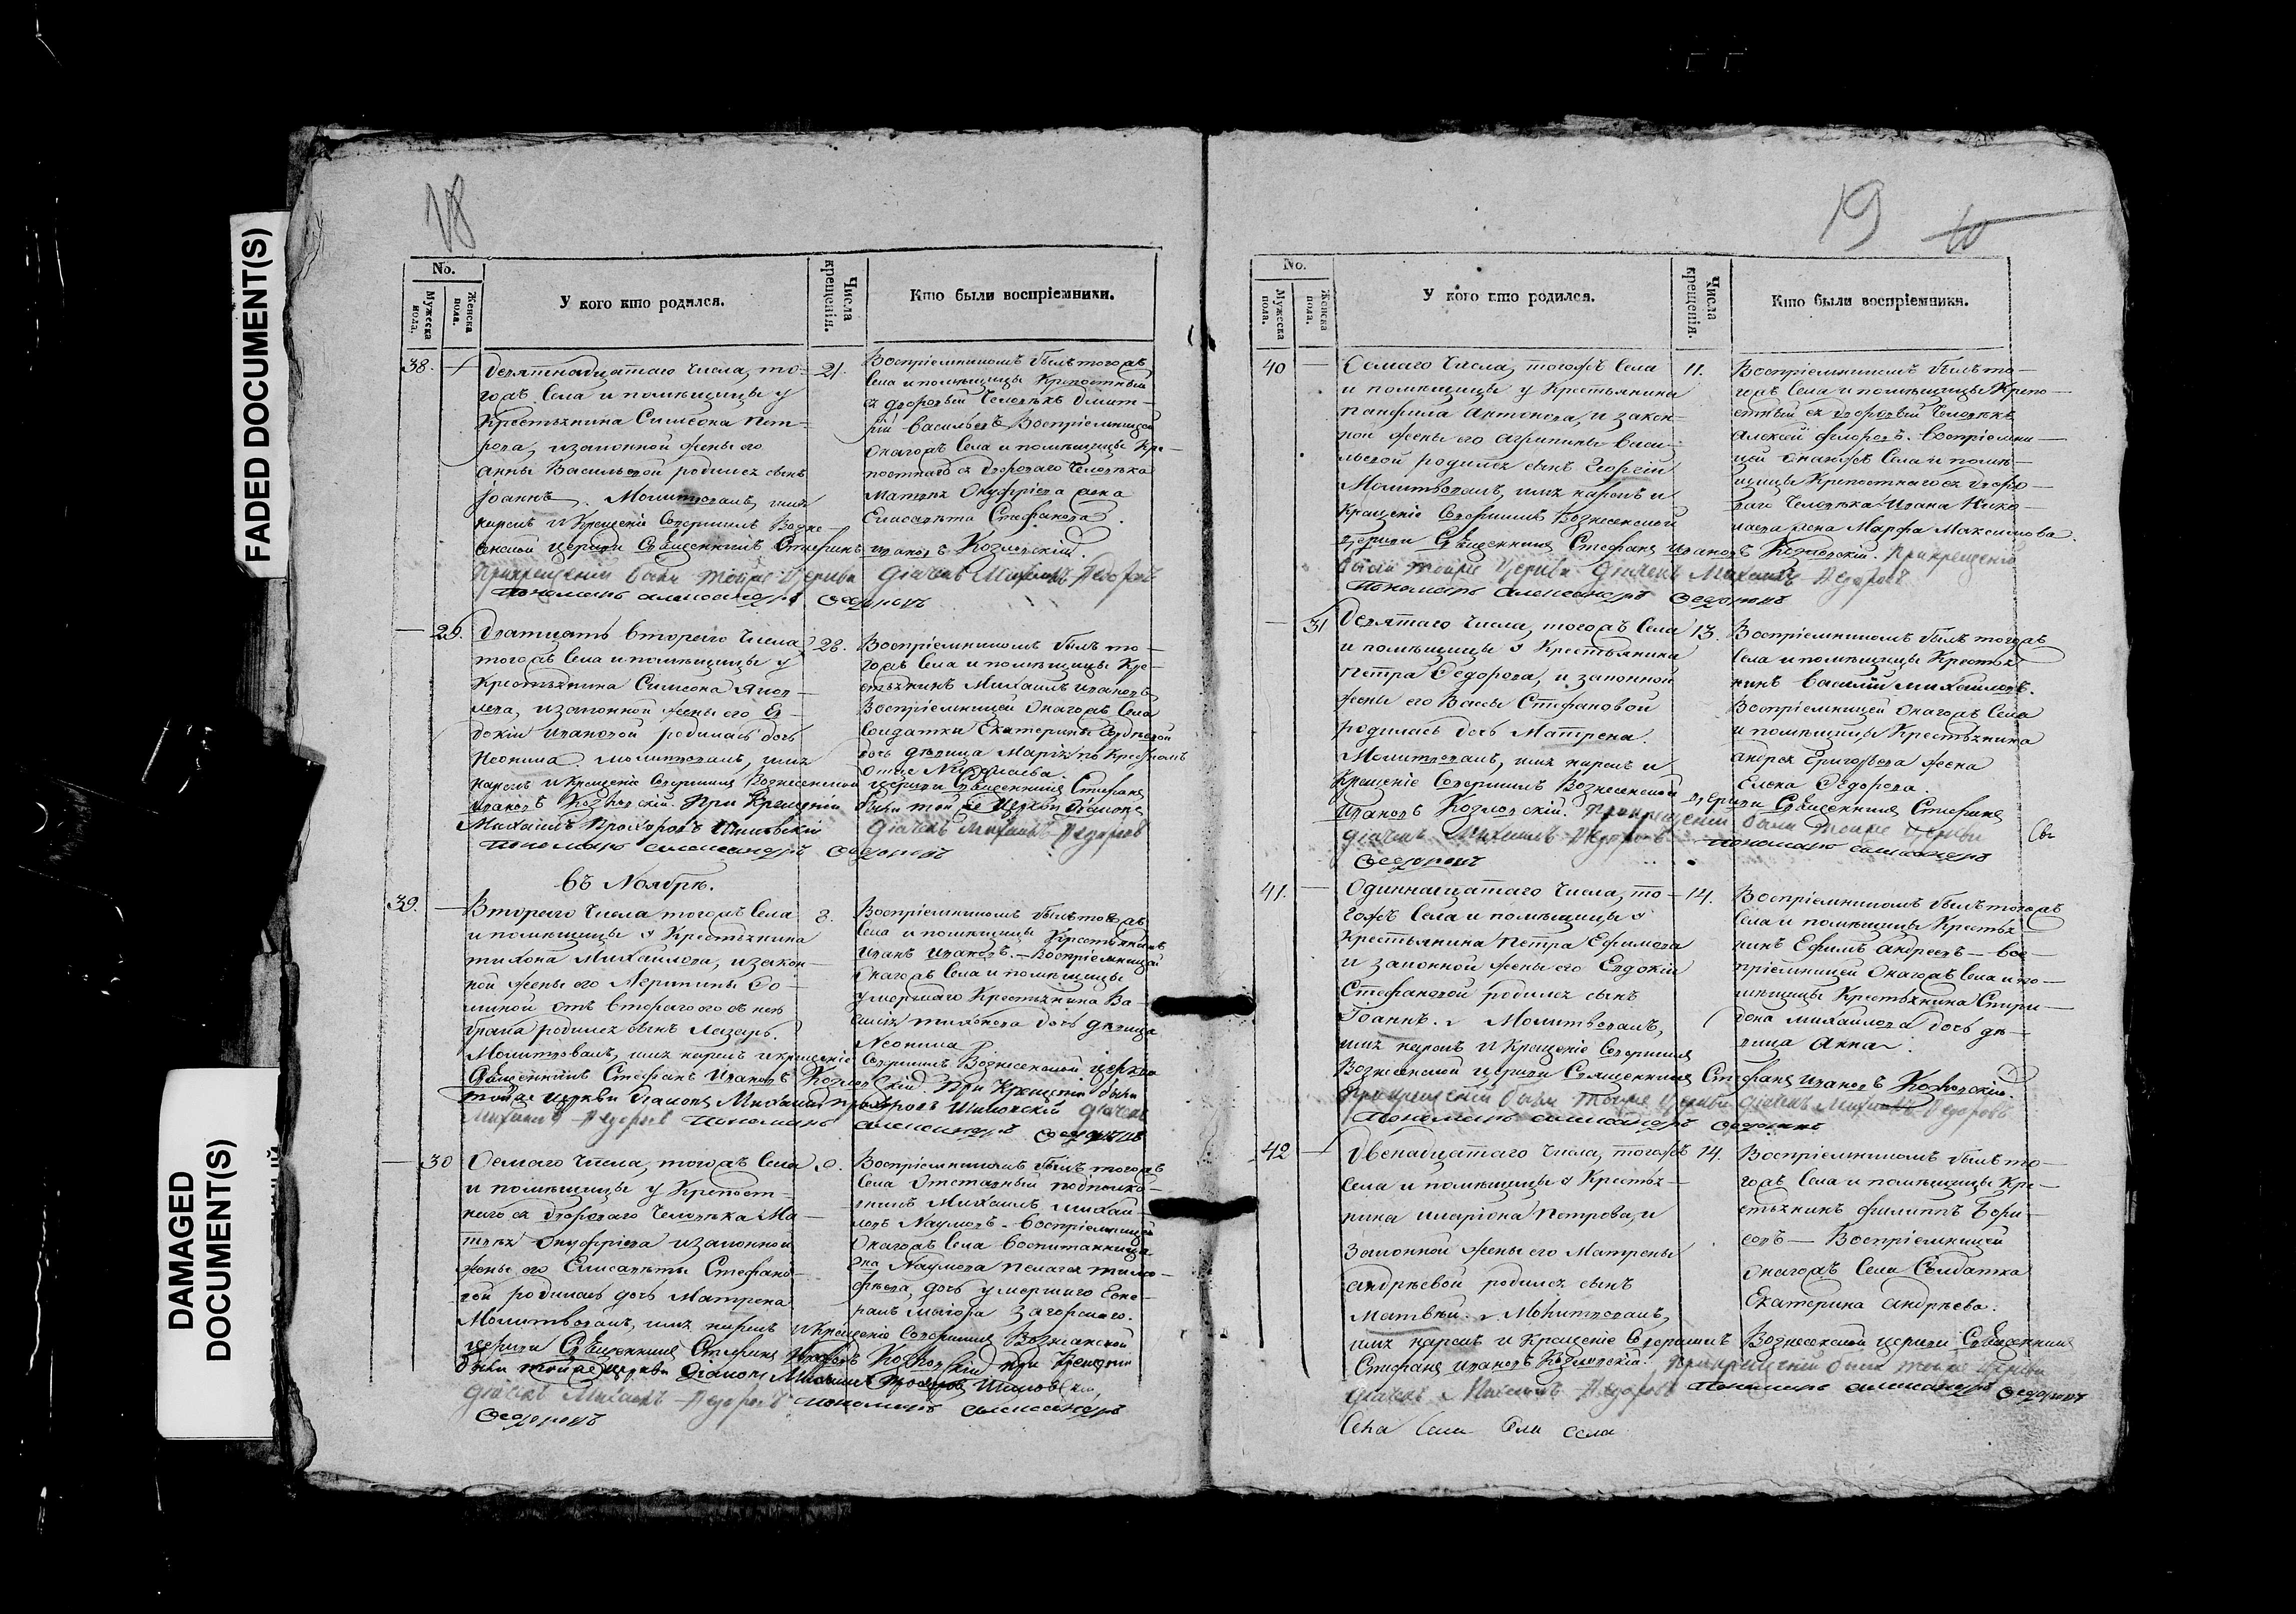 FADED DOCUMENT(S)
DAMAGED
DOCUMENT(S)
18
No.
Мужеска пола.
Женска пола.
У кого кто родился.
Числа крещенія.
Кто были воспріемники.
38.
Девятнадцатаго числа, то-
гожъ села и помѣщицы у
Крестьянина Симеона Пет-
рова, и законной жены его
Анны Васильевой родился сынъ
Іоаннъ. Молитвовалъ, имя
нарекъ и Крещеніе Совершилъ Возне-
сенской церкви Священникъ Стефанъ Ивановъ Козловскій.
При крещеніи были тойже Церкви Дiячекъ Михаилъ Федоровъ
Пономарь Александръ Федоровъ
21.
Воспріемникомъ былъ тогожъ
села и помѣщицы Крепостный
дворовый человѣкъ Дмит-
рій Васильевъ Воспріемницей
онагожъ села и помѣщицы Кре-
постнаго двороваго человѣка
Матвѣя Онуфріева жена
Елисавета Стефанова.
29.
Дватцать втораго числа
тогожъ села и помѣщицы у
Крестьянина Симеона Яков-
лева, и законной жены его Ев-
докіи Ивановой родилась дочь
Неонила. Молитвовалъ, имя
нарекъ и Крещеніе Совершилъ Вознесенской церкви Священникъ Стефанъ
Ивановъ Козловскій. При Крещеніи были той же Церкви Діаконъ
Михаилъ Прохоровъ Дiячекъ Михаилъ Федоровъ
Пономарь Александръ Федоровъ
Воспріемникомъ былъ то-
гожъ села и помѣщицы Кре-
стьянинъ Михаилъ Ивановъ
Воспріемницей онагожъ села
солдатки Екатерины Андреевой
дочь дѣвица Марія по Крестномъ
отце
Въ Ноябрѣ.
39.
Втораго числа тогожъ села
и помѣщицы у Крестьянина
Тихона Михайлова, и закон-
ной жены его
отъ втораго съ нею
брака родился сынъ Лазарь.
Молитвовалъ, имя нарекъ и крещеніе Совершилъ Вознесенской церкви
Священникъ Стефанъ Ивановъ Козловскій. При Крещеніи были
тойже церкви Діаконъ Михаилъ Прохоровъ Дiячекъ
Михаилъ Федоровъ Пономарь Александръ Федоровъ
Воспріемникомъ былъ тогожъ
села и помѣщицы Крестьянинъ
Иванъ Ивановъ. Воспріемницей
онагожъ села и помѣщицы
умершаго Крестьянина Ва-
силія Тихонова дочь дѣвица
Неонила
30
Осмаго числа, тогожъ села
и помѣщицы у Крепост-
наго двороваго человѣка Ма-
твѣя Онуфріева и законной
жены его Елисаветы Стефано-
вой родилась дочь Матрена
Молитвовалъ, имя нарекъ и Крещеніе Совершилъ Вознесенской
церкви Священникъ Стефанъ Ивановъ Козловскій При Крещеніи
были тойже церкви Діаконъ Михаилъ Прохоровъ
Дiячекъ Михаилъ Федоровъ Пономарь Александръ
Федоровъ
9.
Воспріемникомъ былъ тогожъ
села Отставный подполко-
вникъ Михаилъ Михай-
ловъ Наумовъ. Воспріемницей
онагожъ села воспитанница
его Наумова Пелагея Тимо-
феева, дочь умершаго
Маіора Загорскаго.
19
No.
Мужеска пола.
Женска пола.
У кого кто родился.
Числа крещенія.
Кто были воспріемники.
40
Осмаго числа, тогожъ села
и помѣщицы у Крестьянина
Панфила Антонова, и закон-
ной жены его Агрипины Васи-
льевой родился сынъ Георгій
Молитвовалъ, имя нарекъ и
Крещеніе Совершилъ Вознесенской
церкви Священникъ Стефанъ Ивановъ Козловскій. При крещеніи
были тойже Церкви Дiячекъ Михаилъ Федоровъ
Пономарь Александръ Федоровъ
11.
Воспріемникомъ былъ то-
гожъ села и помѣщицы Крепо-
стный дворовый человѣкъ
Алексѣй Фроловъ. Воспріемни-
цей онагожъ села и помѣ-
щицы Крепостнаго дворо-
ваго человѣка Ивана Нико-
лаева жена Марфа Максимова.
31
Девятаго числа, тогожъ села
и помѣщицы у Крестьянина
Петра Федорова, и законной
жены его Вассы Стефановой
родилась дочь Матрена.
Молитвовалъ, имя нарекъ и
Крещеніе Совершилъ Вознесенской церкви Священникъ Стефанъ
Ивановъ Козловскій. При крещеніи были тойже Церкви
Дiячекъ Михаилъ Федоровъ Пономарь Александръ
Федоровъ
13.
Воспріемникомъ былъ тогожъ
села и помѣщицы Крестья-
нинъ Василій Михайловъ.
Воспріемницей онагожъ села
и помѣщицы Крестьянина
Андрея Григорьева жена
Елена Федорова.
41.
Одиннатцатаго числа, то-
гожъ села и помѣщицы у
Крестьянина Петра Ефимова
и законной жены его Евдокіи
Стефановой родился сынъ
Іоаннъ. Молитвовалъ,
имя нарекъ и Крещеніе Совершилъ
Вознесенской церкви Священникъ Стефанъ Ивановъ Козловскій.
При крещеніи были тойже Церкви Дiячекъ Михаилъ Федоровъ
Пономарь Александръ Федоровъ
14.
Воспріемникомъ былъ тогожъ
села и помѣщицы Крестья-
нинъ Ефимъ Андреевъ — вос-
пріемницей онагожъ села и по-
мѣщицы Крестьянина Спири-
дона Михайлова дочь дѣ-
вица Анна.
42
Двенадцатаго числа, тогожъ
села и помѣщицы у Крестья-
нина Иларіона Петрова, и
законной жены его Матрены
Андрѣевой родился сынъ
Матвѣй. Молитвовалъ,
имя нарекъ и Крещеніе Совершилъ Вознесенской церкви Священникъ
Стефанъ Ивановъ Козловскій. При крещеніи были тойже Церкви
Дiячекъ Михаилъ Федоровъ Пономарь Александръ Федоровъ
14.
Воспріемникомъ былъ то-
гожъ села и помѣщицы Кре-
стьянинъ Филиппъ Бори-
совъ — Воспріемницей
онагожъ села солдатка
Екатерина Андрѣева.